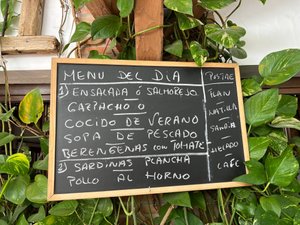 MENU DEL DIA
1) ENSALADA Ó SALMOREJO
GAZPACHO O
COCIDO DE VERANO
SOPA DE PESCADO
BERENGENAS CON TOMATE
2) SARDINAS PLANCHA
POLLO AL HORNO
POSTRE
FLAN
NATILLA
SANDIA
HELADO
CAFE